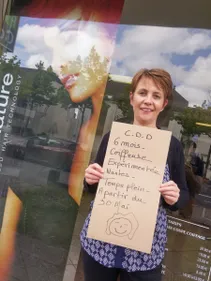 ature
D HAIR TECHNOLOGY
C.D.D
6 mois
Coiffeuse
Expérimentée
Mantes
Temps plein
A partir du
30 Mai